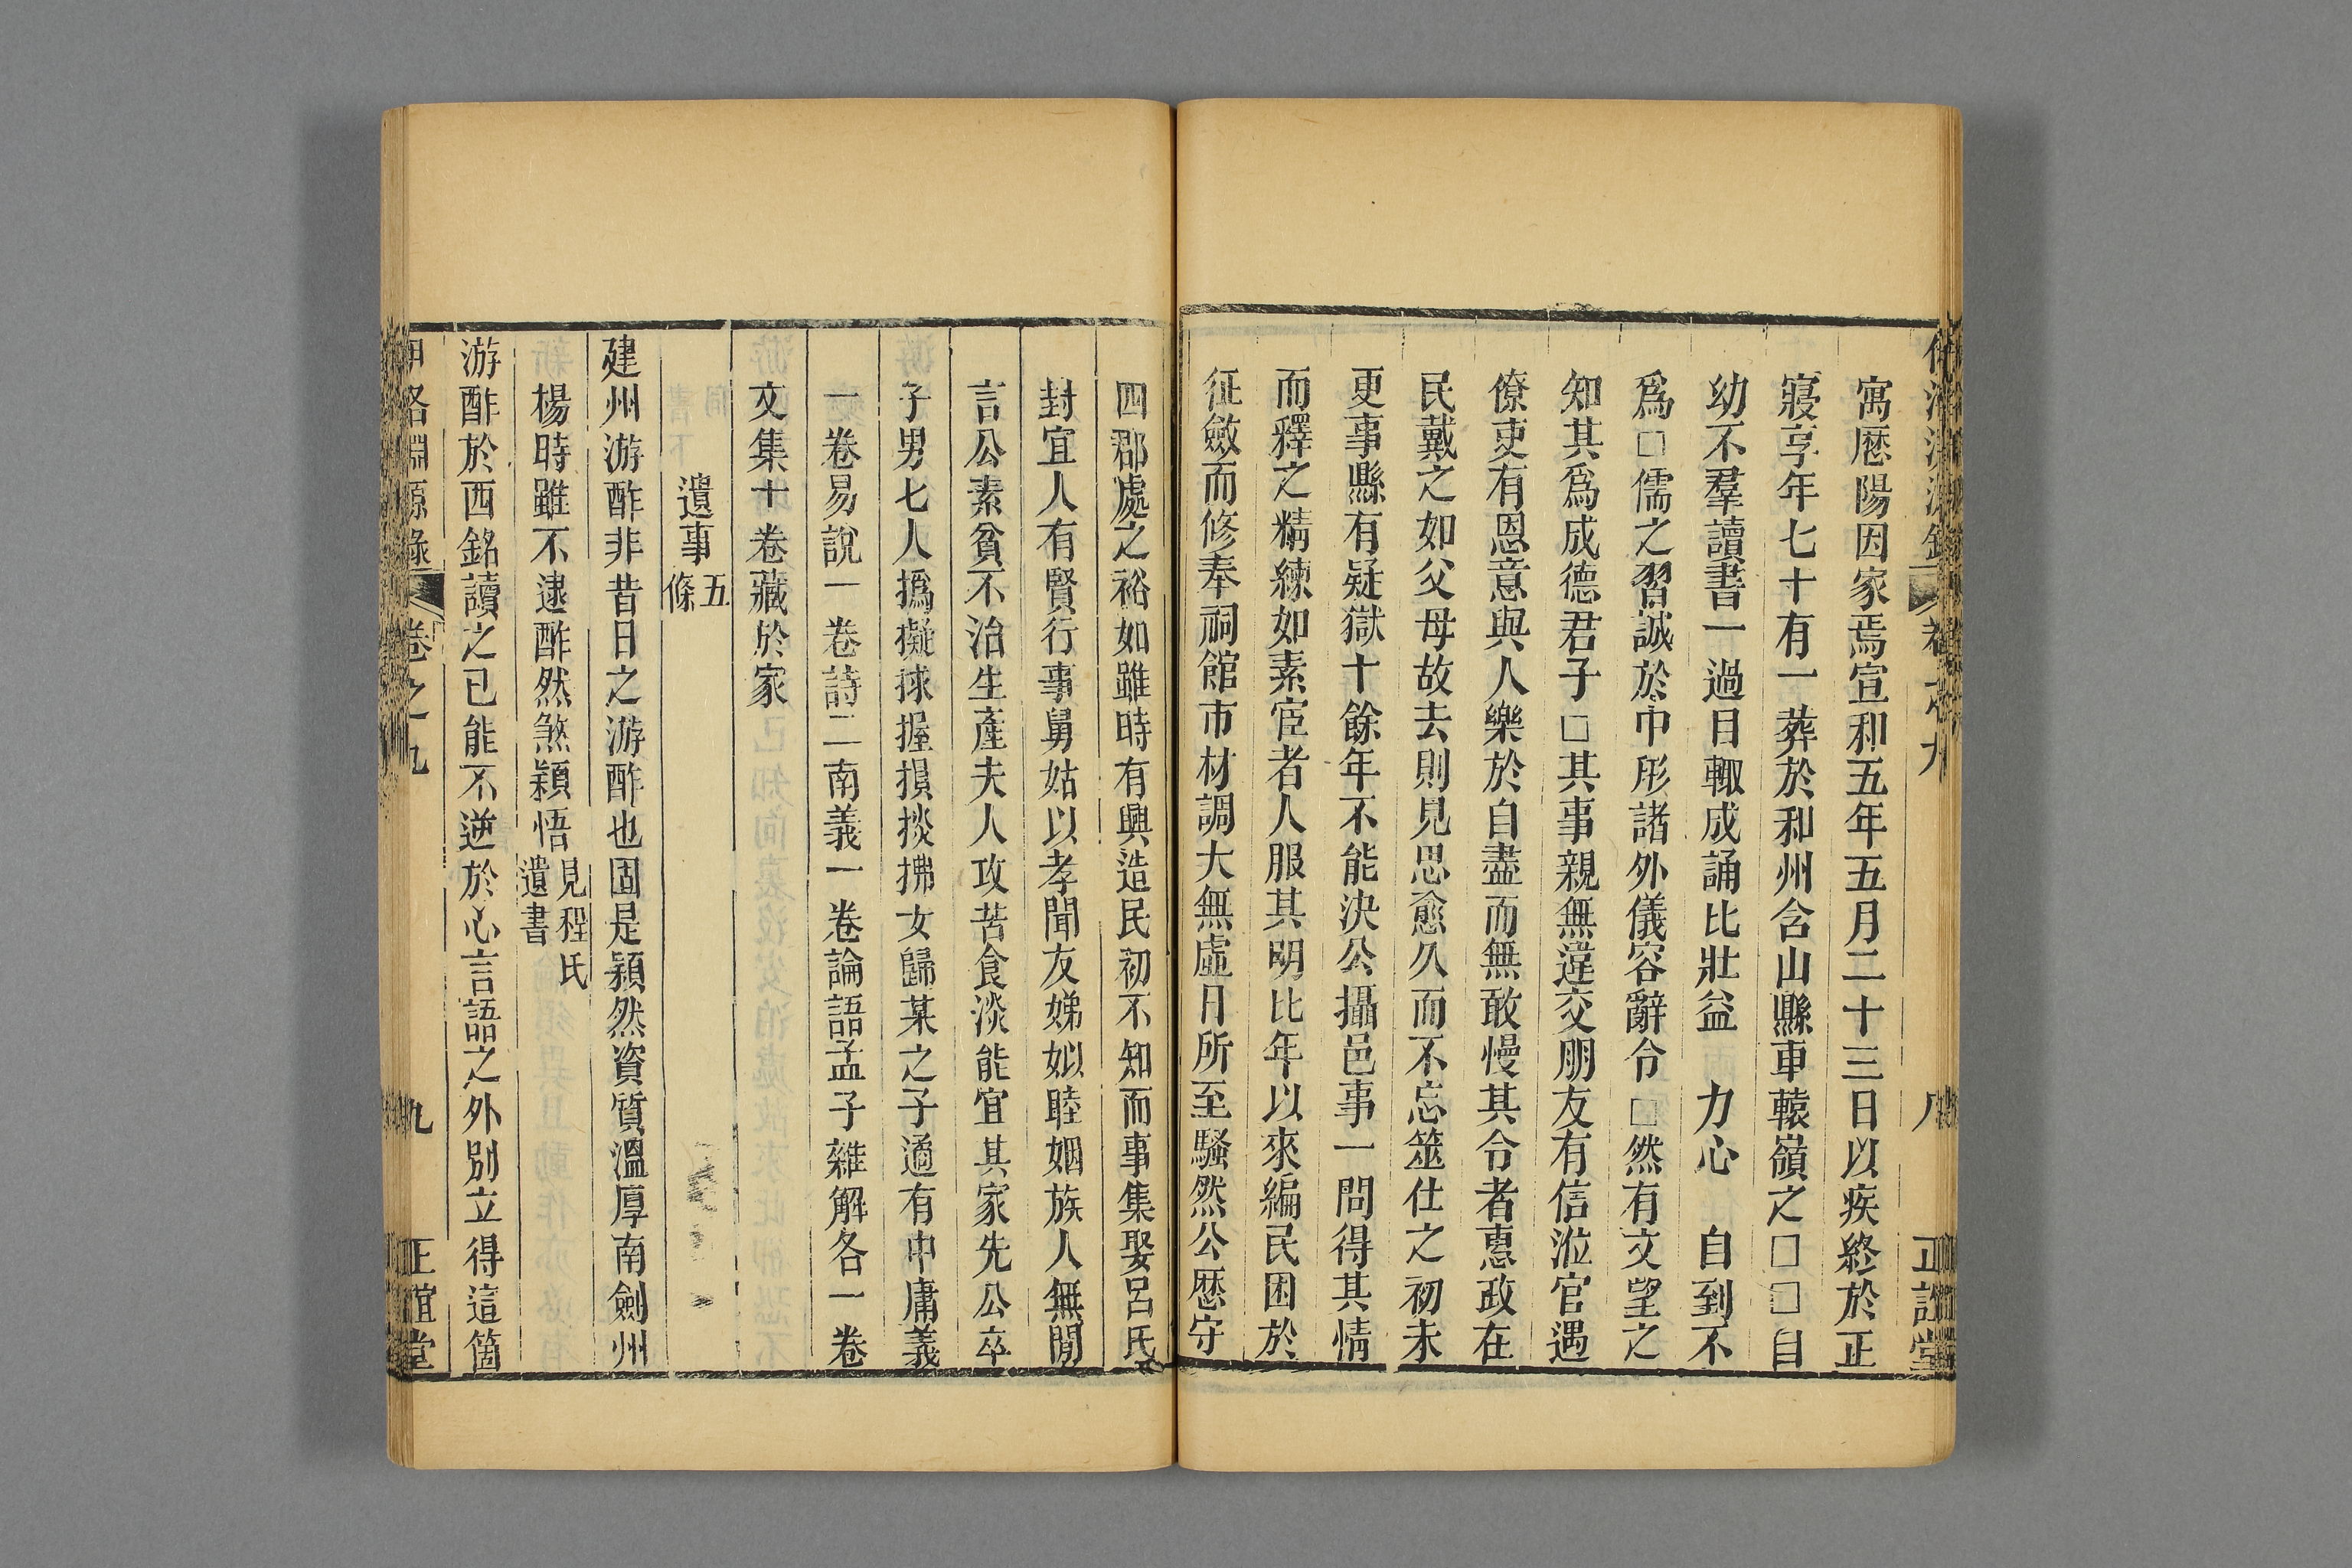 伊洛淵源錄 卷之九 八 正誼堂
寓厯陽因家焉宣和五年五月二十三日以疾終於正
寢享年七十有一葬於和州含山縣車轅嶺之□□自
幼不羣讀書一過目輙成誦比壯益 力心 自到不
爲□儒之習誠於中形諸外儀容辭令□然有文望之
知其爲成德君子□其事親無違交朋友有信涖官遇
僚吏有恩意與人樂於自盡而無敢慢其令者惠政在
民戴之如父母故去則見思愈久而不忘筮仕之初未
更事縣有疑獄十餘年不能決公攝邑事一問得其情
而釋之精練如素宦者人服其明比年以來編民困於
征斂而修奉祠館市材調大無虛日所至騷然公厯守
四郡處之裕如雖時有興造民初不知而事集娶呂氏
封宜人有賢行事舅姑以孝聞友娣姒睦婣族人無閒
言公素貧不治生產夫人攻苦食淡能宜其家先公卒
子男七人撝擬捄握損掞拂女歸某之子遹有中庸義
一卷易說一卷詩二南義一卷論語孟子雜解各一卷
文集十卷藏於家
遺事五條
建州游酢非昔日之游酢也固是穎然資質溫厚南劍州
楊時雖不逮酢然煞穎悟見程氏遺書
游酢於西銘讀之已能不逆於心言語之外別立得這箇
伊洛淵源錄 卷之九 九 正誼堂